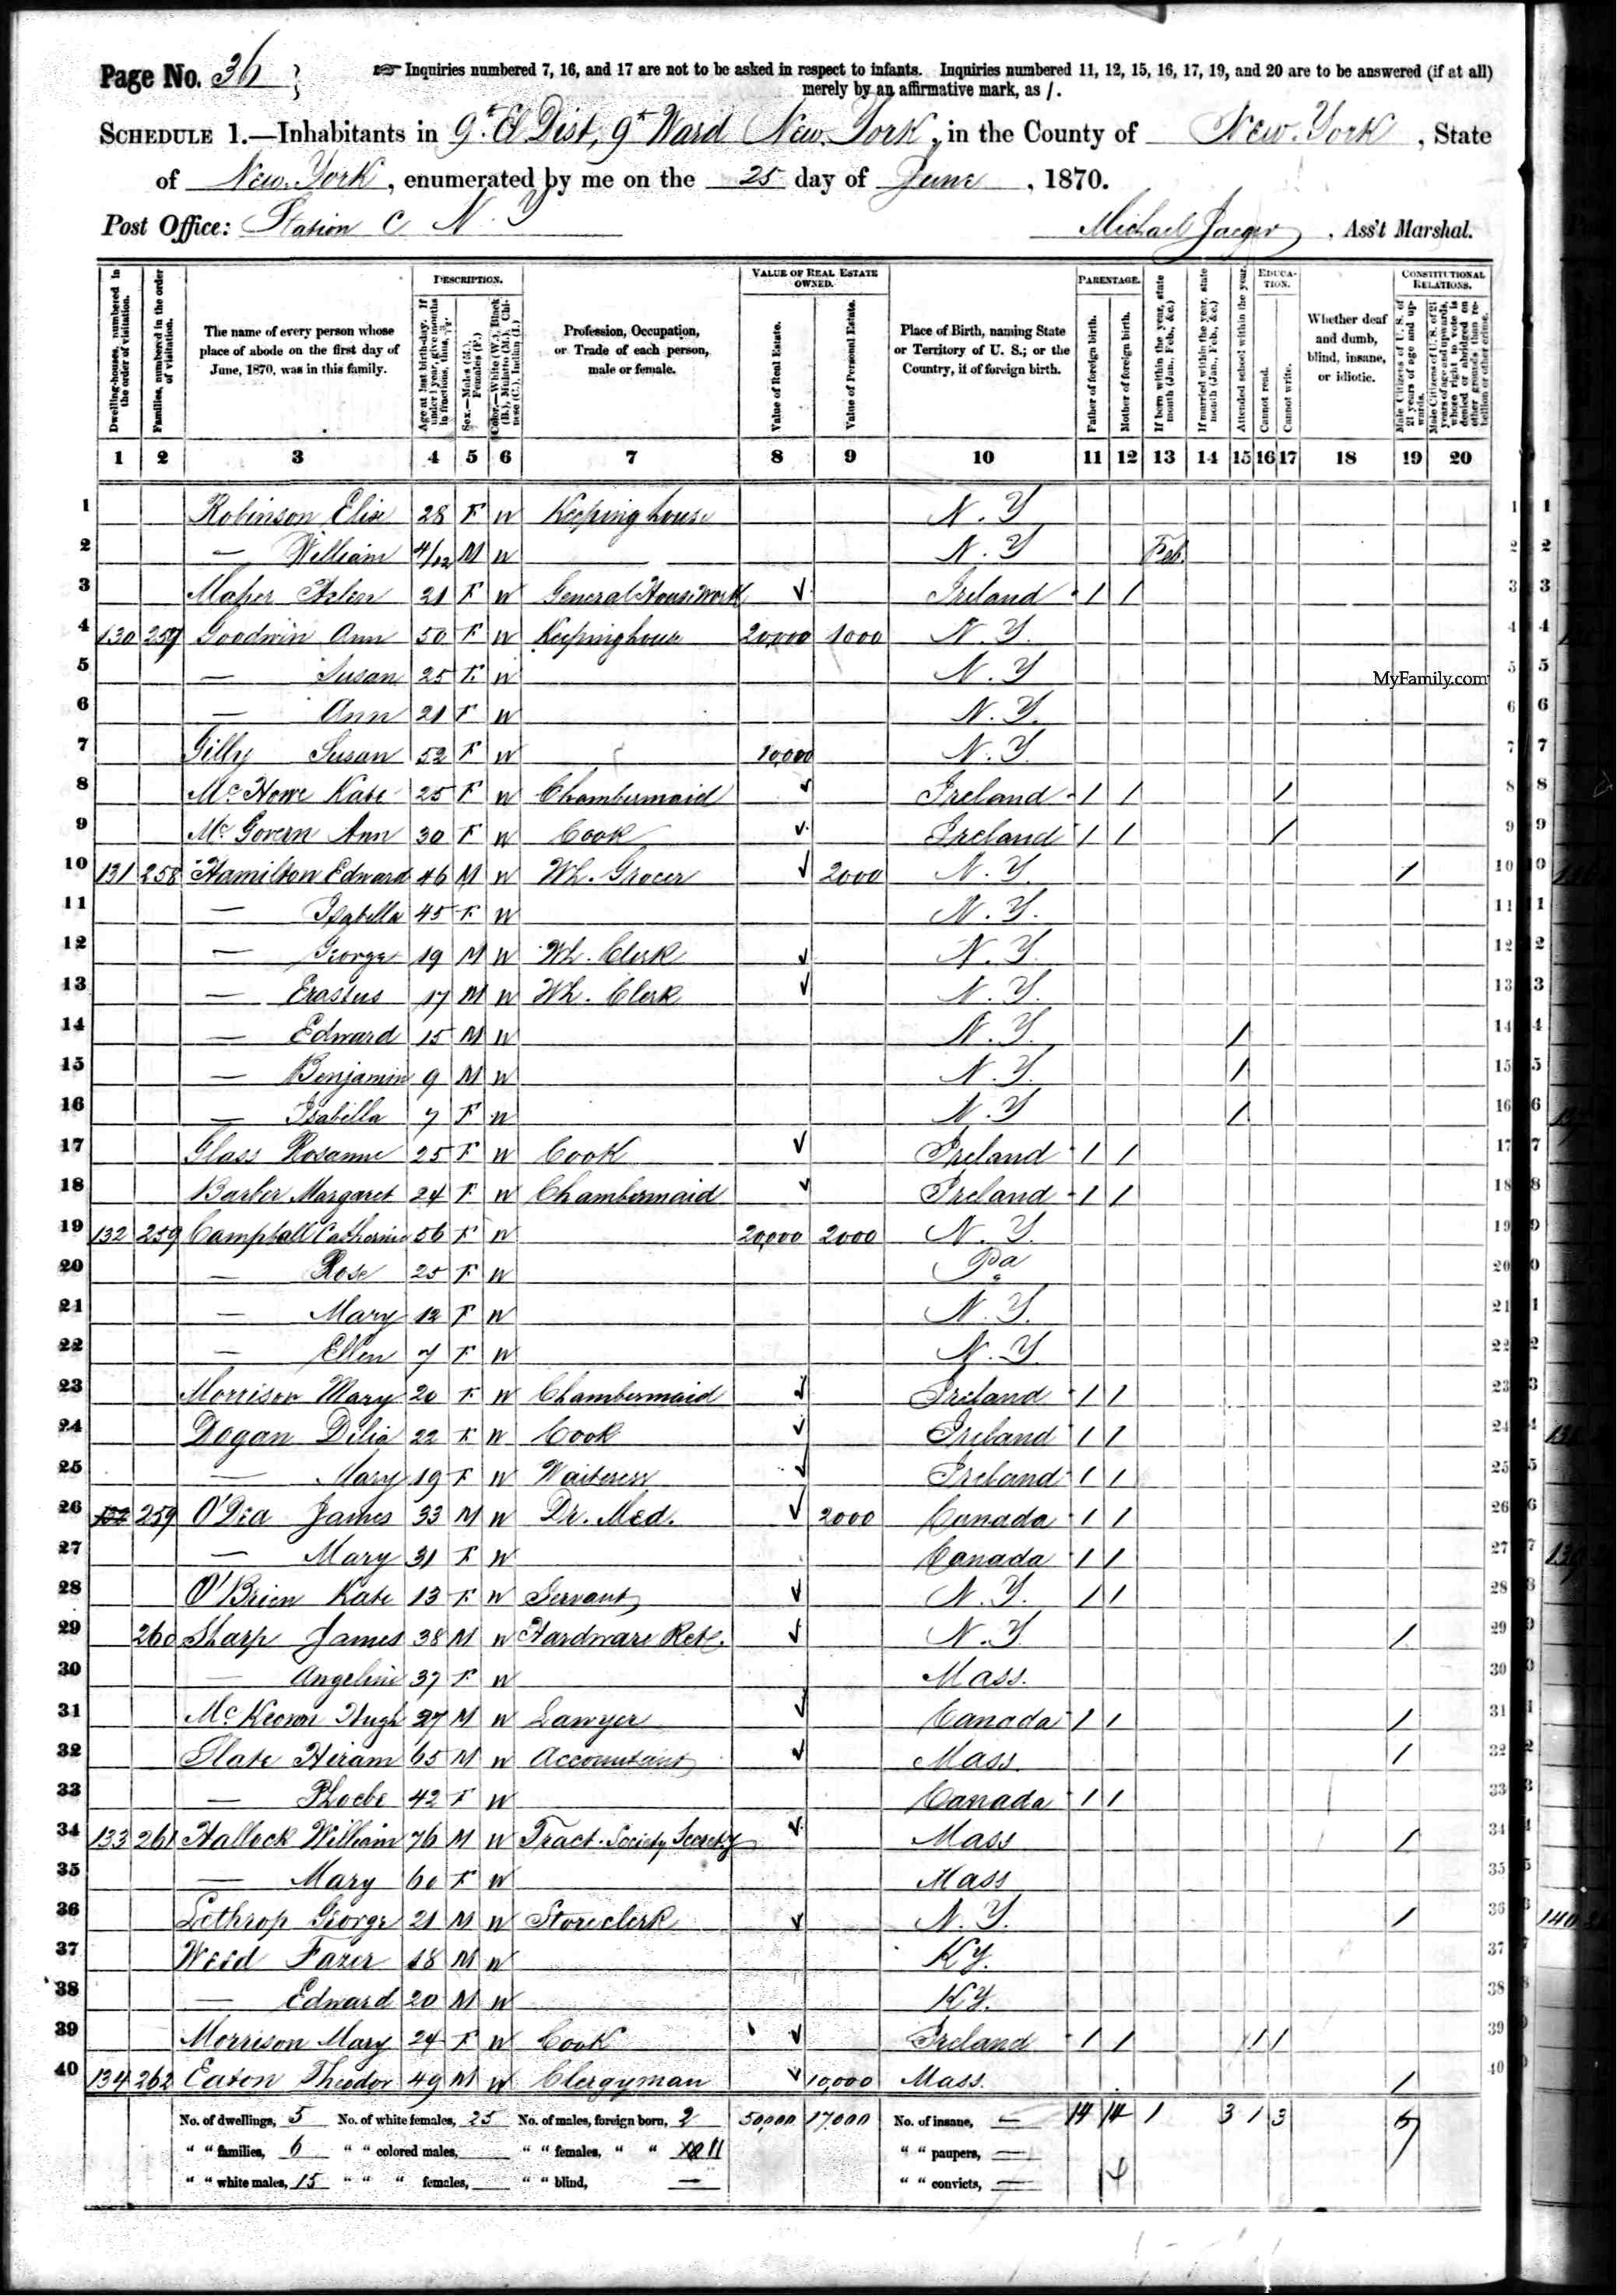 Page No. 36
☞ Inquiries numbered 7, 16, and 17 are not to be asked in respect to infants. Inquiries numbered 11, 12, 15, 16, 17, 19, and 20 are to be answered (if at all)
merely by an affirmative mark, as /.
SCHEDULE 1.—Inhabitants in 9t. El Dist, 9t Ward New York, in the County of New York, State
of New York, enumerated by me on the 25 day of June, 1870.
Post Office: Station C N. Y
Michael Jaeger, Ass't Marshal.
Dwelling-houses, numbered in the order of visitation.
Families, numbered in the order of visitation.
The name of every person whose place of abode on the first day of June, 1870, was in this family.
DESCRIPTION.
Age at last birth-day. If under 1 year, give months in fractions, thus, 3/12.
Sex.—Males (M.), Females (F.)
Color.—White (W.), Black (B.), Mulatto (M.), Chinese (C.), Indian (I.)
Profession, Occupation, or Trade of each person, male or female.
VALUE OF REAL ESTATE OWNED.
Value of Real Estate.
Value of Personal Estate.
Place of Birth, naming State or Territory of U. S.; or the Country, if of foreign birth.
PARENTAGE.
Father of foreign birth.
Mother of foreign birth.
If born within the year, state month (Jan., Feb., &c.)
If married within the year, state month (Jan., Feb., &c.)
Attended school within the year.
EDUCATION.
Cannot read.
Cannot write.
Whether deaf and dumb, blind, insane, or idiotic.
CONSTITUTIONAL RELATIONS.
Male Citizens of U. S. of 21 years of age and upwards.
Male Citizens of U. S. of 21 years of age and upwards, whose right to vote is denied or abridged on other grounds than rebellion or other crime.
1 2 3 4 5 6 7 8 9 10 11 12 13 14 15 16 17 18 19 20
1 Robinson Elise 28 F W Keeping house N. Y 1
2 — William 4/12 M W N. Y Feb. 2
3 Maher Helen 21 F W General Housework ✓ Ireland / / 3
4 130 257 Goodwin Ann 50 F W Keepinghouse 20,000 1000 N. Y. 4
5 — Susan 25 F W N. Y 5
MyFamily.com
6 — Ann 21 F W N. Y. 6
7 Gilly Susan 52 F W 10,000 N. Y. 7
8 McHowe Kate 25 F W Chambermaid ✓ Ireland / / / 8
9 Mc Govern Ann 30 F W Cook ✓ Ireland / / / 9
10 131 258 Hamilton Edward 46 M W Wh. Grocer ✓ 2000 N. Y. / 10
11 — Isabella 45 F W N. Y. 11
12 — George 19 M W Wh. Clerk ✓ N. Y. 12
13 — Erastus 17 M W Wh. Clerk ✓ N. Y. 13
14 — Edward 15 M W N. Y. / 14
15 — Benjamin 9 M W N. Y. / 15
16 — Isabella 7 F W N. Y / 16
17 Glass Rosanne 25 F W Cook ✓ Ireland / / 17
18 Barker Margaret 24 F W Chambermaid ✓ Ireland / / 18
19 132 259 Campball Catherine 56 F W 20,000 2000 N. Y. 19
20 — Rose 25 F W Pa 20
21 — Mary 12 F W N. Y. 21
22 — Ellen 7 F W N. Y. 22
23 Morrison Mary 20 F W Chambermaid ✓ Ireland / / 23
24 Dogan Delia 22 F W Cook ✓ Ireland / / 24
25 — Mary 19 F W Waiteress ✓ Ireland / / 25
26 132 259 O'Dea James 33 M W Dr. Med. ✓ 2000 Canada / / 26
27 — Mary 31 F W Canada / / 27
28 O'Brien Kate 13 F W Servant ✓ N. Y. / / 28
29 260 Sharp James 38 M W Hardware Ret. ✓ N. Y. / 29
30 — Angeline 37 F W Mass. 30
31 McKeown Hugh 27 M W Lawyer ✓ Canada / / / 31
32 Slate Hiram 65 M W Accountant ✓ Mass. / 32
33 — Phoebe 42 F W Canada / / 33
34 133 261 Hallock William 76 M W Tract. Society Secrety ✓ Mass / 34
35 — Mary 60 F W Mass 35
36 Lothrop George 21 M W Store clerk ✓ N. Y. / 36
37 Weid Fazer 18 M W KY. 37
38 — Edward 20 M W KY. 38
39 Morrison Mary 24 F W Cook ✓ Ireland / / / / 39
40 134 262 Eaton Theodor 49 M W Clergyman ✓ 10,000 Mass. / 40
No. of dwellings, 5 No. of white females, 25 No. of males, foreign born, 2 50,000 17,000 No. of insane, — 14 14 1 3 1 3
" " families, 6 " " colored males, " " females, " " 11 " " paupers, —
" " white males, 15 " " " females, " " blind, — " " convicts, —